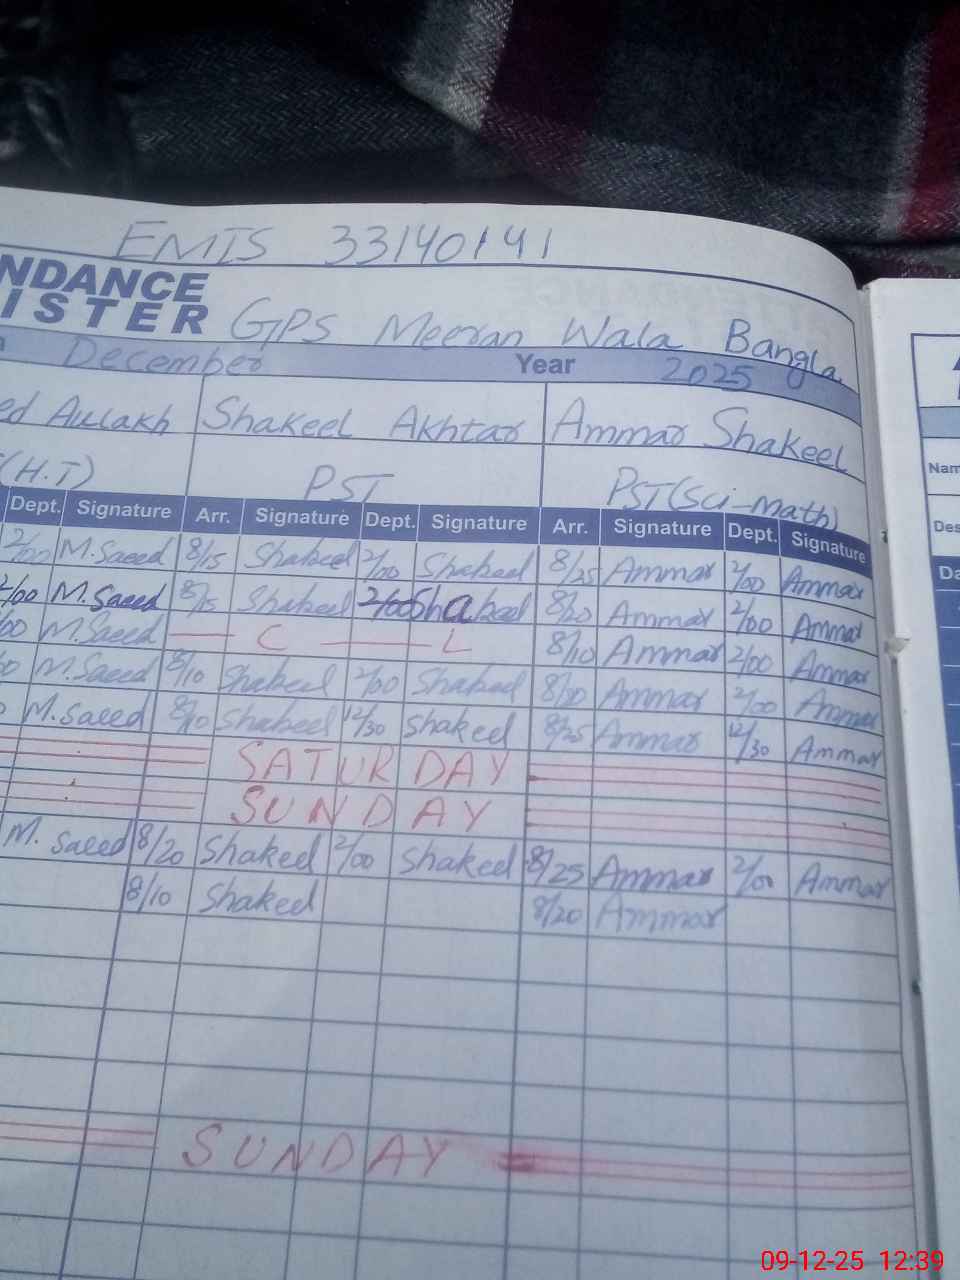 EMIS 33140141
NDANCE
ISTER GPS Meeran Wala Bangla
December Year 2025
ed Aulakh Shakeel Akhtar Ammar Shakeel
(H.T) PST PST(Sci-Math)
Dept. Signature Arr. Signature Dept. Signature Arr. Signature Dept. Signature
2/00 M.Saeed 8/15 Shakeel 2/00 Shakeel 8/25 Ammar 2/00 Ammar
2/00 M.Saeed 8/15 Shakeel 2/00 Shakeel 8/20 Ammar 2/00 Ammar
/00 M.Saeed C L 8/10 Ammar 2/00 Ammar
M.Saeed 8/10 Shakeel 2/00 Shakeel 8/20 Ammar 2/00 Ammar
M.Saeed 8/10 Shakeel 12/30 Shakeel 8/25 Ammar 12/30 Ammar
SATURDAY
SUNDAY
M.Saeed 8/20 Shakeel 2/00 Shakeel 8/25 Ammar 2/00 Ammar
8/10 Shakeel 8/20 Ammar
SUNDAY
Nam
Des
Da
09-12-25 12:39